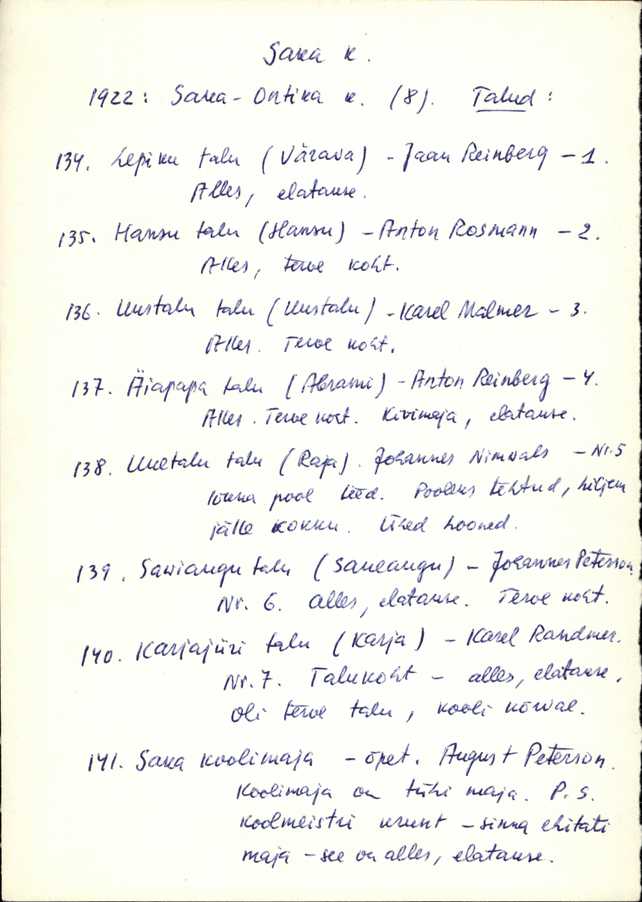 Saka k.
1922: Saka-Ontika k. (8). Talud:
134. Lepiku talu (Värava) - Jaan Reinberg - 1.
Alles, elatakse.
135. Hansu talu (Hansu) - Anton Rosmann - 2.
Alles, terve koht.
136. Uustalu talu (Uustalu) - Karel Malmer - 3.
Alles. Terve koht.
137. Äiapapa talu (Abrami) - Anton Reinberg - 4.
Alles. Terve koht. Kivimaja, elatakse.
138. Uuetalu talu (Raja). Johannes Nimvals - Nr. 5
lõuna pool teed. Pooleks tehtud, hiljem
jälle kokku. Ühed hooned.
139. Saviaugu talu (Saueaugu) - Johannes Peterson
Nr. 6. alles, elatakse. Terve koht.
140. Karjajüri talu (Karja) - Karel Randmer.
Nr. 7. Talukoht - alles, elatakse.
Oli terve talu, kooli kõrval.
141. Saka koolimaja - õpet. August Peterson.
Koolimaja on tühi maja. P.S.
koolmeistri krunt - sinna ehitati
maja - see on alles, elatakse.